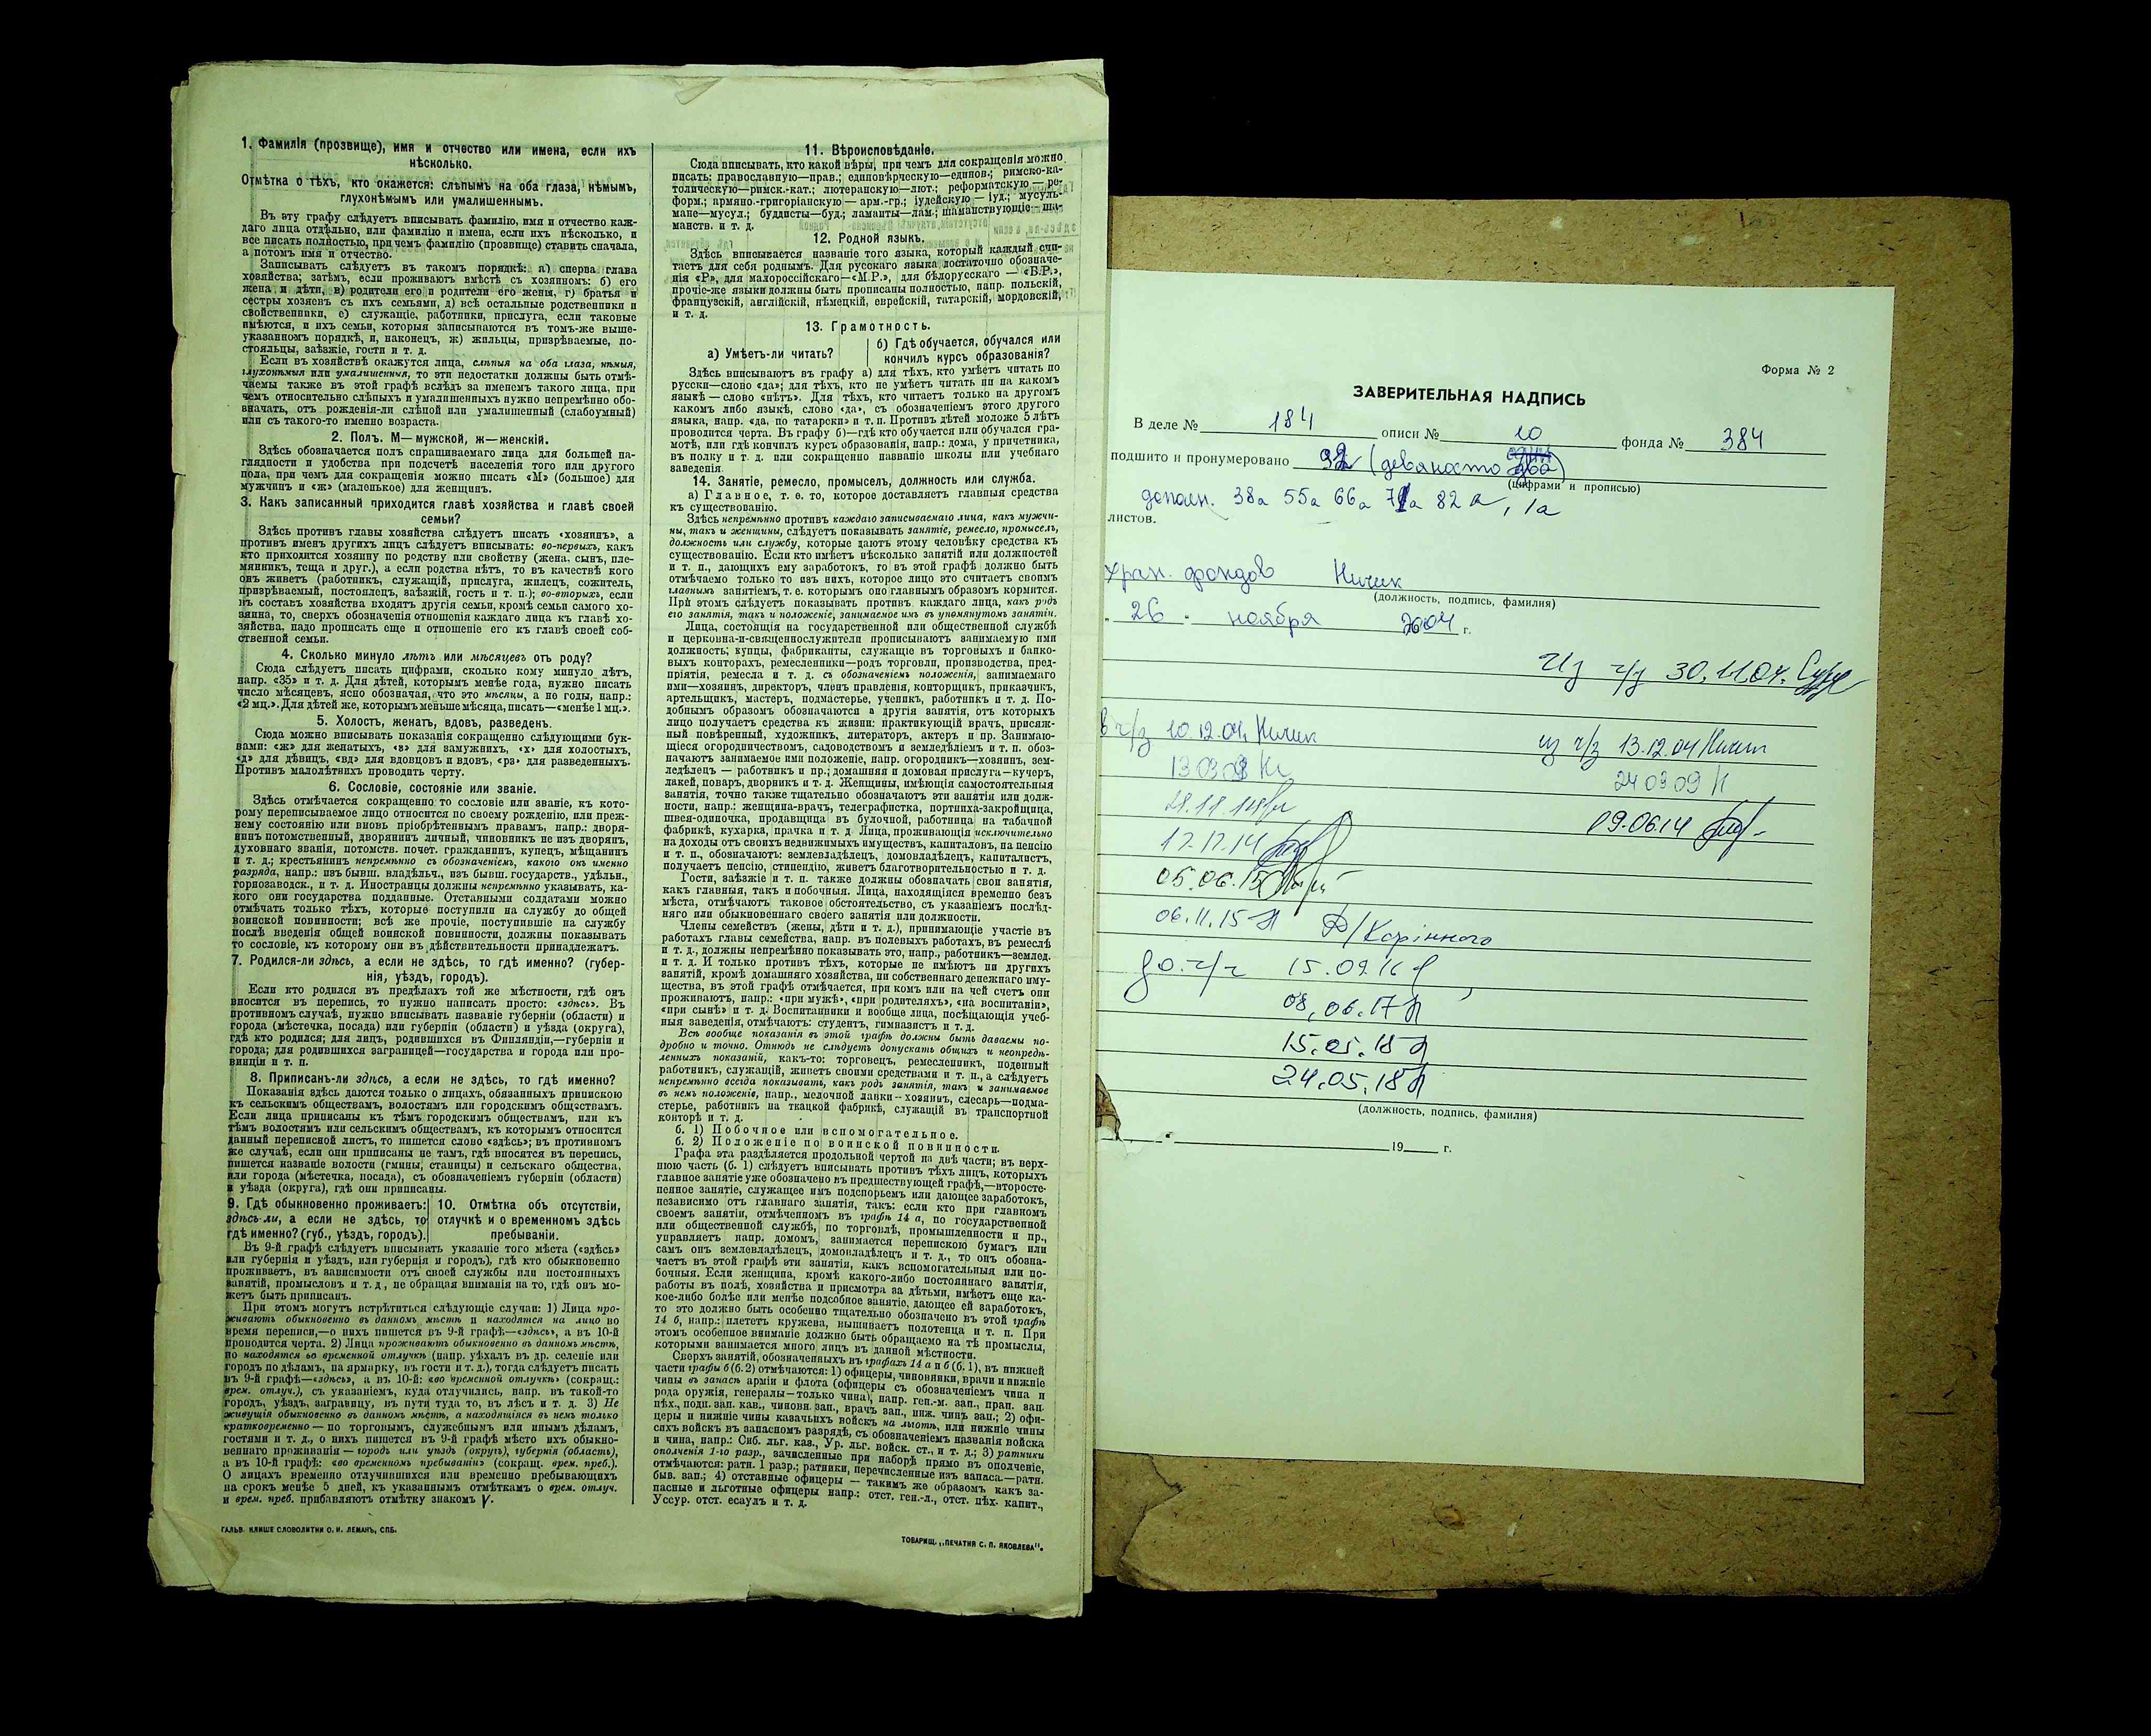 1. Фамилія (прозвище), имя и отчество или имена, если ихъ
нѣсколько.
Отмѣтка о тѣхъ, кто окажется: слѣпымъ на оба глаза, нѣмымъ,
глухонѣмымъ или умалишеннымъ.
Въ эту графу слѣдуетъ вписывать фамилію, имя и отчество каж-
даго лица отдѣльно, или фамилію и имена, если ихъ нѣсколько, и
все писать полностью, при чемъ фамилію (прозвище) ставить сначала,
а потомъ имя и отчество.
Записывать слѣдуетъ въ такомъ порядкѣ: а) сперва глава
хозяйства; затѣмъ, если проживаютъ вмѣстѣ съ хозяиномъ: б) его
жена и дѣти, в) родители его и родители его жены, г) братья и
сестры хозяевъ съ ихъ семьями, д) всѣ остальные родственники и
свойственники, е) служащіе, работники, прислуга, если таковые
имѣются, и ихъ семьи, которыя записываются въ томъ-же выше-
указанномъ порядкѣ, и, наконецъ, ж) жильцы, призрѣваемые, по-
стояльцы, заѣзжіе, гости и т. д.
Если въ хозяйствѣ окажутся лица, слѣпыя на оба глаза, нѣмыя,
глухонѣмыя или умалишенныя, то эти недостатки должны быть отмѣ-
чаемы также въ этой графѣ вслѣдъ за именемъ такого лица, при
чемъ относительно слѣпыхъ и умалишенныхъ нужно непремѣнно обо-
значать, отъ рожденія-ли слѣпой или умалишенный (слабоумный)
или съ такого-то именно возраста.
2. Полъ. М—мужской, ж—женскій.
Здѣсь обозначается полъ спрашиваемаго лица для большей на-
глядности и удобства при подсчетѣ населенія того или другого
пола, при чемъ для сокращенія можно писать «М» (большое) для
мужчинъ и «ж» (маленькое) для женщинъ.
3. Какъ записанный приходится главѣ хозяйства и главѣ своей
семьи?
Здѣсь противъ главы хозяйства слѣдуетъ писать «хозяинъ», а
противъ именъ другихъ лицъ слѣдуетъ вписывать: во-первыхъ, какъ
кто приходится хозяину по родству или свойству (жена, сынъ, пле-
мянникъ, теща и друг.), а если родства нѣтъ, то въ качествѣ кого
онъ живетъ (работникъ, служащій, прислуга, жилецъ, сожитель,
призрѣваемый, постоялецъ, заѣзжій, гость и т. п.); во-вторыхъ, если
въ составъ хозяйства входятъ другія семьи, кромѣ семьи самого хо-
зяина, то, сверхъ обозначенія отношенія каждаго лица къ главѣ хо-
зяйства, надо прописать еще и отношеніе его къ главѣ своей соб-
ственной семьи.
4. Сколько минуло лѣтъ или мѣсяцевъ отъ роду?
Сюда слѣдуетъ писать цифрами, сколько кому минуло лѣтъ,
напр. «35» и т. д. Для дѣтей, которымъ менѣе года, нужно писать
число мѣсяцевъ, ясно обозначая, что это мѣсяцы, а не годы, напр.:
«2 мц.». Для дѣтей же, которымъ меньше мѣсяца, писать—«менѣе 1 мц.».
5. Холостъ, женатъ, вдовъ, разведенъ.
Сюда можно вписывать показанія сокращенно слѣдующими бук-
вами: «ж» для женатыхъ, «з» для замужнихъ, «х» для холостыхъ,
«д» для дѣвицъ, «вд» для вдовцовъ и вдовъ, «рз» для разведенныхъ.
Противъ малолѣтнихъ проводить черту.
6. Сословіе, состояніе или званіе.
Здѣсь отмѣчается сокращенно то сословіе или званіе, къ кото-
рому переписываемое лицо относится по своему рожденію, или преж-
нему состоянію или вновь пріобрѣтеннымъ правамъ, напр.: дворя-
нинъ потомственный, дворянинъ личный, чиновникъ не изъ дворянъ,
духовнаго званія, потомств. почет. гражданинъ, купецъ, мѣщанинъ
и т. д.; крестьянинъ непремѣнно съ обозначеніемъ, какого онъ именно
разряда, напр.: изъ бывш. владѣльч., изъ бывш. государств., удѣльн.,
горнозаводск., и т. д. Иностранцы должны непремѣнно указывать, ка-
кого они государства подданные. Отставными солдатами можно
отмѣчать только тѣхъ, которые поступили на службу до общей
воинской повинности; всѣ же прочіе, поступившіе на службу
послѣ введенія общей воинской повинности, должны показывать
то сословіе, къ которому они въ дѣйствительности принадлежатъ.
7. Родился-ли здѣсь, а если не здѣсь, то гдѣ именно? (губер-
нія, уѣздъ, городъ).
Если кто родился въ предѣлахъ той же мѣстности, гдѣ онъ
вносится въ перепись, то нужно написать просто: «здѣсь». Въ
противномъ случаѣ, нужно вписывать названіе губерніи (области) и
города (мѣстечка, посада) или губерніи (области) и уѣзда (округа),
гдѣ кто родился; для лицъ, родившихся въ Финляндіи,—губерніи и
города; для родившихся заграницей—государства и города или про-
винціи и т. п.
8. Приписанъ-ли здѣсь, а если не здѣсь, то гдѣ именно?
Показанія здѣсь даются только о лицахъ, обязанныхъ припискою
къ сельскимъ обществамъ, волостямъ или городскимъ обществамъ.
Если лица приписаны къ тѣмъ городскимъ обществамъ, или къ
тѣмъ волостямъ или сельскимъ обществамъ, къ которымъ относится
данный переписной листъ, то пишется слово «здѣсь»; въ противномъ
же случаѣ, если они приписаны не тамъ, гдѣ вносятся въ перепись,
пишется названіе волости (гмины, станицы) и сельскаго общества,
или города (мѣстечка, посада), съ обозначеніемъ губерніи (области)
и уѣзда (округа), гдѣ они приписаны.
9. Гдѣ обыкновенно проживаетъ:
здѣсь-ли, а если не здѣсь, то
гдѣ именно? (губ., уѣздъ, городъ).
10. Отмѣтка объ отсутствіи,
отлучкѣ и о временномъ здѣсь
пребываніи.
Въ 9-й графѣ слѣдуетъ вписывать указаніе того мѣста («здѣсь»
или губернія и уѣздъ, или губернія и городъ), гдѣ кто обыкновенно
проживаетъ, въ зависимости отъ своей службы или постоянныхъ
занятій, промысловъ и т. д., не обращая вниманія на то, гдѣ онъ мо-
жетъ быть приписанъ.
При этомъ могутъ встрѣтиться слѣдующіе случаи: 1) Лица про-
живаютъ обыкновенно въ данномъ мѣстѣ и находятся на лицо во
время переписи,—о нихъ пишется въ 9-й графѣ—«здѣсь», а въ 10-й
проводится черта. 2) Лица проживаютъ обыкновенно въ данномъ мѣстѣ,
но находятся во временной отлучкѣ (напр. уѣхалъ въ др. селеніе или
городъ по дѣламъ, на ярмарку, въ гости и т. д.), тогда слѣдуетъ писать
въ 9-й графѣ—«здѣсь», а въ 10-й: «во временной отлучкѣ» (сокращ.:
врем. отлуч.), съ указаніемъ, куда отлучились, напр. въ такой-то
городъ, уѣздъ, заграницу, въ пути туда то, въ лѣсъ и т. д. 3) Не
живущія обыкновенно въ данномъ мѣстѣ, а находящіяся въ немъ только
кратковременно — по торговымъ, служебнымъ или инымъ дѣламъ,
гостями и т. д., о нихъ пишется въ 9-й графѣ мѣсто ихъ обыкно-
веннаго проживанія — городъ или уѣздъ (округъ), губернія (область),
а въ 10-й графѣ: «во временномъ пребываніи» (сокращ. врем. преб.).
О лицахъ временно отлучившихся или временно пребывающихъ
на срокъ менѣе 5 дней, къ указаннымъ отмѣткамъ о врем. отлуч.
и врем. преб. прибавляютъ отмѣтку знакомъ V.
ГАЛЬВ. КЛИШЕ СЛОВОЛИТНИ О. И. ЛЕМАНЪ, СПБ.
11. Вѣроисповѣданіе.
Сюда вписывать, кто какой вѣры, при чемъ для сокращенія можно
писать: православную—прав.; единовѣрческую—единов.; римско-ка-
толическую—римск.-кат.; лютеранскую—лют.; реформатскую — ре-
форм.; армяно.-григоріанскую — арм.-гр.; іудейскую — іуд.; мусуль-
мане—мусул.; буддисты—буд.; ламаиты—лам.; шаманствующіе—ша-
манств. и т. д.
12. Родной языкъ.
Здѣсь вписывается названіе того языка, который каждый счи-
таетъ для себя роднымъ. Для русскаго языка достаточно обозначе-
нія «Р», для малороссійскаго—«М.Р.», для бѣлорусскаго — «Б.Р.»,
прочіе-же языки должны быть прописаны полностью, напр. польскій,
французскій, англійскій, нѣмецкій, еврейскій, татарскій, мордовскій,
и т. д.
13. Грамотность.
а) Умѣетъ-ли читать?
б) Гдѣ обучается, обучался или
кончилъ курсъ образованія?
Здѣсь вписываютъ въ графу а) для тѣхъ, кто умѣетъ читать по
русски—слово «да»; для тѣхъ, кто не умѣетъ читать ни на какомъ
языкѣ — слово «нѣтъ». Для тѣхъ, кто читаетъ только на другомъ
какомъ либо языкѣ, слово «да», съ обозначеніемъ этого другого
языка, напр. «да, по татарски» и т. п. Противъ дѣтей моложе 5 лѣтъ
проводится черта. Въ графу б)—гдѣ кто обучается или обучался гра-
мотѣ, или гдѣ кончилъ курсъ образованія, напр.: дома, у причетника,
въ полку и т. д. или сокращенно названіе школы или учебнаго
заведенія.
14. Занятіе, ремесло, промыселъ, должность или служба.
а) Главное, т. е. то, которое доставляетъ главныя средства
къ существованію.
Здѣсь непремѣнно противъ каждаго записываемаго лица, какъ мужчи-
ны, такъ и женщины, слѣдуетъ показывать занятіе, ремесло, промыселъ,
должность или службу, которые даютъ этому человѣку средства къ
существованію. Если кто имѣетъ нѣсколько занятій или должностей
и т. п., дающихъ ему заработокъ, то въ этой графѣ должно быть
отмѣчаемо только то изъ нихъ, которое лицо это считаетъ своимъ
главнымъ занятіемъ, т. е. которымъ оно главнымъ образомъ кормится.
При этомъ слѣдуетъ показывать противъ каждаго лица, какъ родъ
его занятія, такъ и положеніе, занимаемое имъ въ упомянутомъ занятіи.
Лица, состоящія на государственной или общественной службѣ
и церковно-и-священнослужители прописываютъ занимаемую ими
должность; купцы, фабриканты, служащіе въ торговыхъ и банко-
выхъ конторахъ, ремесленники—родъ торговли, производства, пред-
пріятія, ремесла и т. д. съ обозначеніемъ положенія, занимаемаго
ими—хозяинъ, директоръ, членъ правленія, конторщикъ, приказчикъ,
артельщикъ, мастеръ, подмастерье, ученикъ, работникъ и т. д. По-
добнымъ образомъ обозначаются и другія занятія, отъ которыхъ
лицо получаетъ средства къ жизни: практикующій врачъ, присяж-
ный повѣренный, художникъ, литераторъ, актеръ и пр. Занимаю-
щіеся огородничествомъ, садоводствомъ и земледѣліемъ и т. п. обоз-
начаютъ занимаемое ими положеніе, напр. огородникъ—хозяинъ, зем-
ледѣлецъ — работникъ и пр.; домашняя и домовая прислуга—кучеръ,
лакей, поваръ, дворникъ и т. д. Женщины, имѣющія самостоятельныя
занятія, точно также тщательно обозначаютъ эти занятія или долж-
ности, напр.: женщина-врачъ, телеграфистка, портниха-закройщица,
швея-одиночка, продавщица въ булочной, работница на табачной
фабрикѣ, кухарка, прачка и т. д. Лица, проживающія исключительно
на доходы отъ своихъ недвижимыхъ имуществъ, капиталовъ, на пенсію
и т. п., обозначаютъ: землевладѣлецъ, домовладѣлецъ, капиталистъ,
получаетъ пенсію, стипендію, живетъ благотворительностью и т. д.
Гости, заѣзжіе и т. п. также должны обозначать свои занятія,
какъ главныя, такъ и побочныя. Лица, находящіяся временно безъ
мѣста, отмѣчаютъ таковое обстоятельство, съ указаніемъ послѣд-
няго или обыкновеннаго своего занятія или должности.
Члены семействъ (жены, дѣти и т. д.), принимающіе участіе въ
работахъ главы семейства, напр. въ полевыхъ работахъ, въ ремеслѣ
и т. д., должны непремѣнно показывать это, напр., работникъ—землед.
и т. д. И только противъ тѣхъ, которые не имѣютъ ни другихъ
занятій, кромѣ домашняго хозяйства, ни собственнаго денежнаго иму-
щества, въ этой графѣ отмѣчается, при комъ или на чей счетъ они
проживаютъ, напр.: «при мужѣ», «при родителяхъ», «на воспитаніи»,
«при сынѣ» и т. д. Воспитанники и вообще лица, посѣщающія учеб-
ныя заведенія, отмѣчаютъ: студентъ, гимназистъ и т. д.
Всѣ вообще показанія въ этой графѣ должны быть даваемы по-
дробно и точно. Отнюдь не слѣдуетъ допускать общихъ и неопредѣ-
ленныхъ показаній, какъ-то: торговецъ, ремесленникъ, поденный
работникъ, служащій, живетъ своими средствами и т. п., а слѣдуетъ
непремѣнно всегда показывать, какъ родъ занятія, такъ и занимаемое
въ немъ положеніе, напр., мелочной лавки—хозяинъ, слесарь—подма-
стерье, работникъ на ткацкой фабрикѣ, служащій въ транспортной
конторѣ и т. д.
б. 1) Побочное или вспомогательное.
б. 2) Положеніе по воинской повинности.
Графа эта раздѣляется продольной чертой на двѣ части; въ верх-
нюю часть (б. 1) слѣдуетъ вписывать противъ тѣхъ лицъ, которыхъ
главное занятіе уже обозначено въ предшествующей графѣ,—второсте-
пенное занятіе, служащее имъ подспорьемъ или дающее заработокъ,
независимо отъ главнаго занятія, такъ: если кто при главномъ
своемъ занятіи, отмѣченномъ въ графѣ 14 а, по государственной
или общественной службѣ, по торговлѣ, промышленности и пр.,
управляетъ напр. домомъ, занимается перепискою бумагъ или
самъ онъ землевладѣлецъ, домовладѣлецъ и т. д., то онъ обозна-
чаетъ въ этой графѣ эти занятія, какъ вспомогательныя или по-
бочныя. Если женщина, кромѣ какого-либо постояннаго занятія,
работы въ полѣ, хозяйства и присмотра за дѣтьми, имѣетъ еще ка-
кое-либо болѣе или менѣе подсобное занятіе, дающее ей заработокъ,
то это должно быть особенно тщательно обозначено въ этой графѣ
14 б, напр.: плететъ кружева, вышиваетъ полотенца и т. п. При
этомъ особенное вниманіе должно быть обращаемо на тѣ промыслы,
которыми занимается много лицъ въ данной мѣстности.
Сверхъ занятій, обозначенныхъ въ графахъ 14 а и б (б. 1), въ нижней
части графы б (б. 2) отмѣчаются: 1) офицеры, чиновники, врачи и нижніе
чины въ запасѣ арміи и флота (офицеры съ обозначеніемъ чина и
рода оружія, генералы—только чина), напр. ген.-м. зап., прап. зап.
пѣх., подп. зап. кав., чиновн. зап., врачъ зап., ниж. чинъ зап.; 2) офи-
церы и нижніе чины казачьихъ войскъ на льготѣ, или нижніе чины
сихъ войскъ въ запасномъ разрядѣ, съ обозначеніемъ названія войска
и чина, напр.: Сиб. льг. каз., Ур. льг. войск. ст., и т. д.; 3) ратники
ополченія 1-го разр., зачисленные при наборѣ прямо въ ополченіе,
отмѣчаются: ратн. 1 разр.; ратники, перечисленные изъ запаса.—ратн.
быв. зап.; 4) отставные офицеры — такимъ же образомъ какъ за-
пасные и льготные офицеры напр.: отст. ген.-л., отст. пѣх. капит.,
Уссур. отст. есаулъ и т. д.
ТОВАРИЩ. „ПЕЧАТНЯ С. П. ЯКОВЛЕВА".
Форма № 2
ЗАВЕРИТЕЛЬНАЯ НАДПИСЬ
В деле № 184 описи № 10 фонда № 384
подшито и пронумеровано 92 (девяносто два)
(цифрами и прописью)
дополн. 38а 55а 66а 71а 82а, 1а
листов.
хран. фондов Ничик
(должность, подпись, фамилия)
26 ноября 2004 г.
Из ч/з 30.11.04.
в ч/з 10.12.04. Ничик
из ч/з 13.12.04 Ничик
13 03 09
24 03 09 Н
09.06.14
17.12.14
05.06.15
06.11.15
15.09.16
08.06.17
15.05.18
24.05.18
(должность, подпись, фамилия)
19 г.